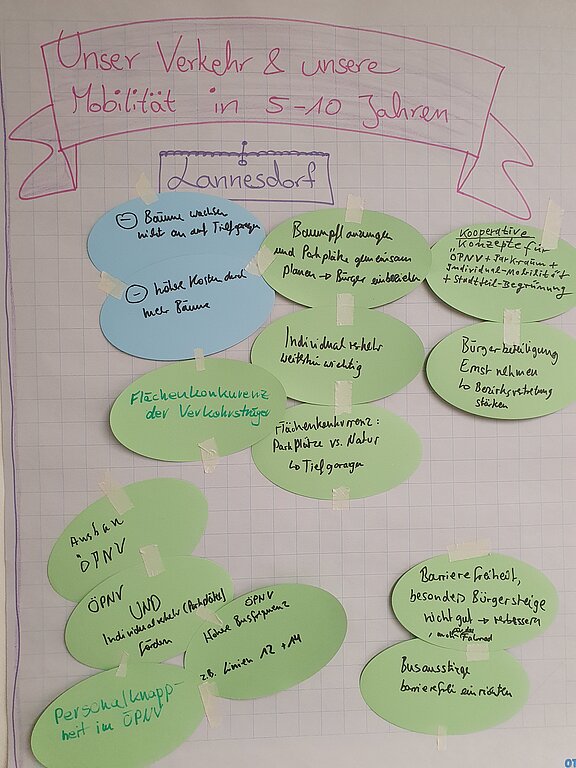 Unser Verkehr & unsere
Mobilität in 5-10 Jahren
Lannesdorf
⊖ Bäume wachsen
nicht an auf Tiefgaragen
⊖ hohe Kosten durch
mehr Bäume
Flächenkonkurenz
der Verkehrsträger
Baumpflanzungen
und Parkplätze gemeinsam
planen → Bürger einbeziehen
Individualverkehr
weiterhin wichtig
Flächenkonkurrenz:
Parkplätze vs. Natur
↳ Tiefgaragen
Kooperative
"Konzepte für
ÖPNV + Parkraum +
Individual-Mobilität
+ Stadtteil-Begrünung
Bürgerbeteiligung
Ernst nehmen
↳ Bezirksvertretung
stärken
Ausbau
ÖPNV
ÖPNV
UND
Individualverkehr (Parkplätze)
fördern
Personalknapp-
heit im ÖPNV
ÖPNV
Höhere Busfrequenz
z.B. Linien 12 + 14
Barrierefreiheit,
besonders Bürgersteige
nicht gut → verbessern
Fahrrad
Busausstiege
barrierefrei einrichten
01